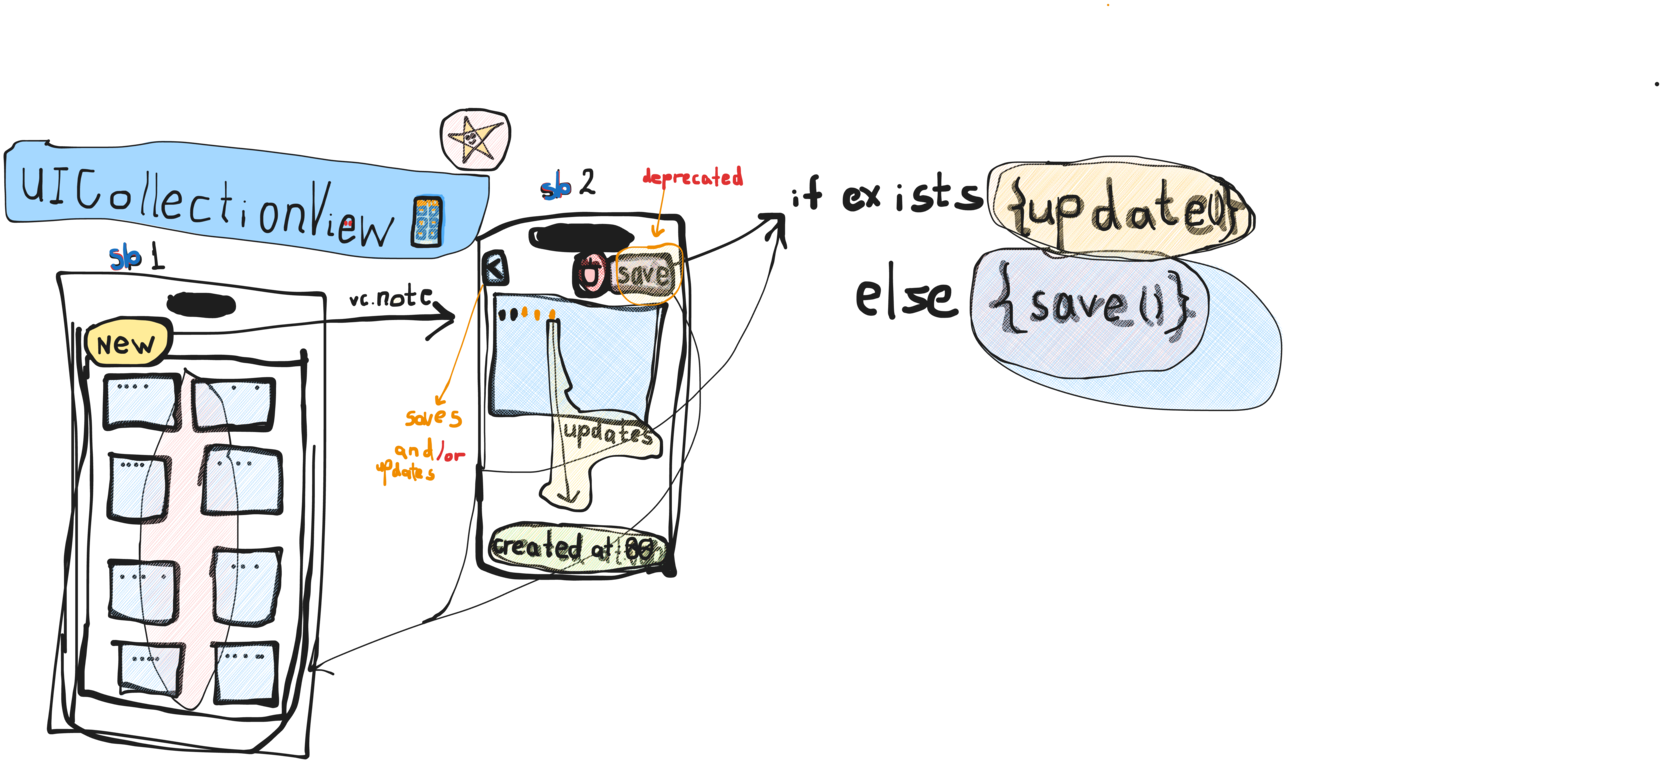 UICollectionView
sb 1
New
vc.note
sb 2
deprecated
<
save
saves
and/or
updates
updates
created at:
if exists {update()}
else {save()}